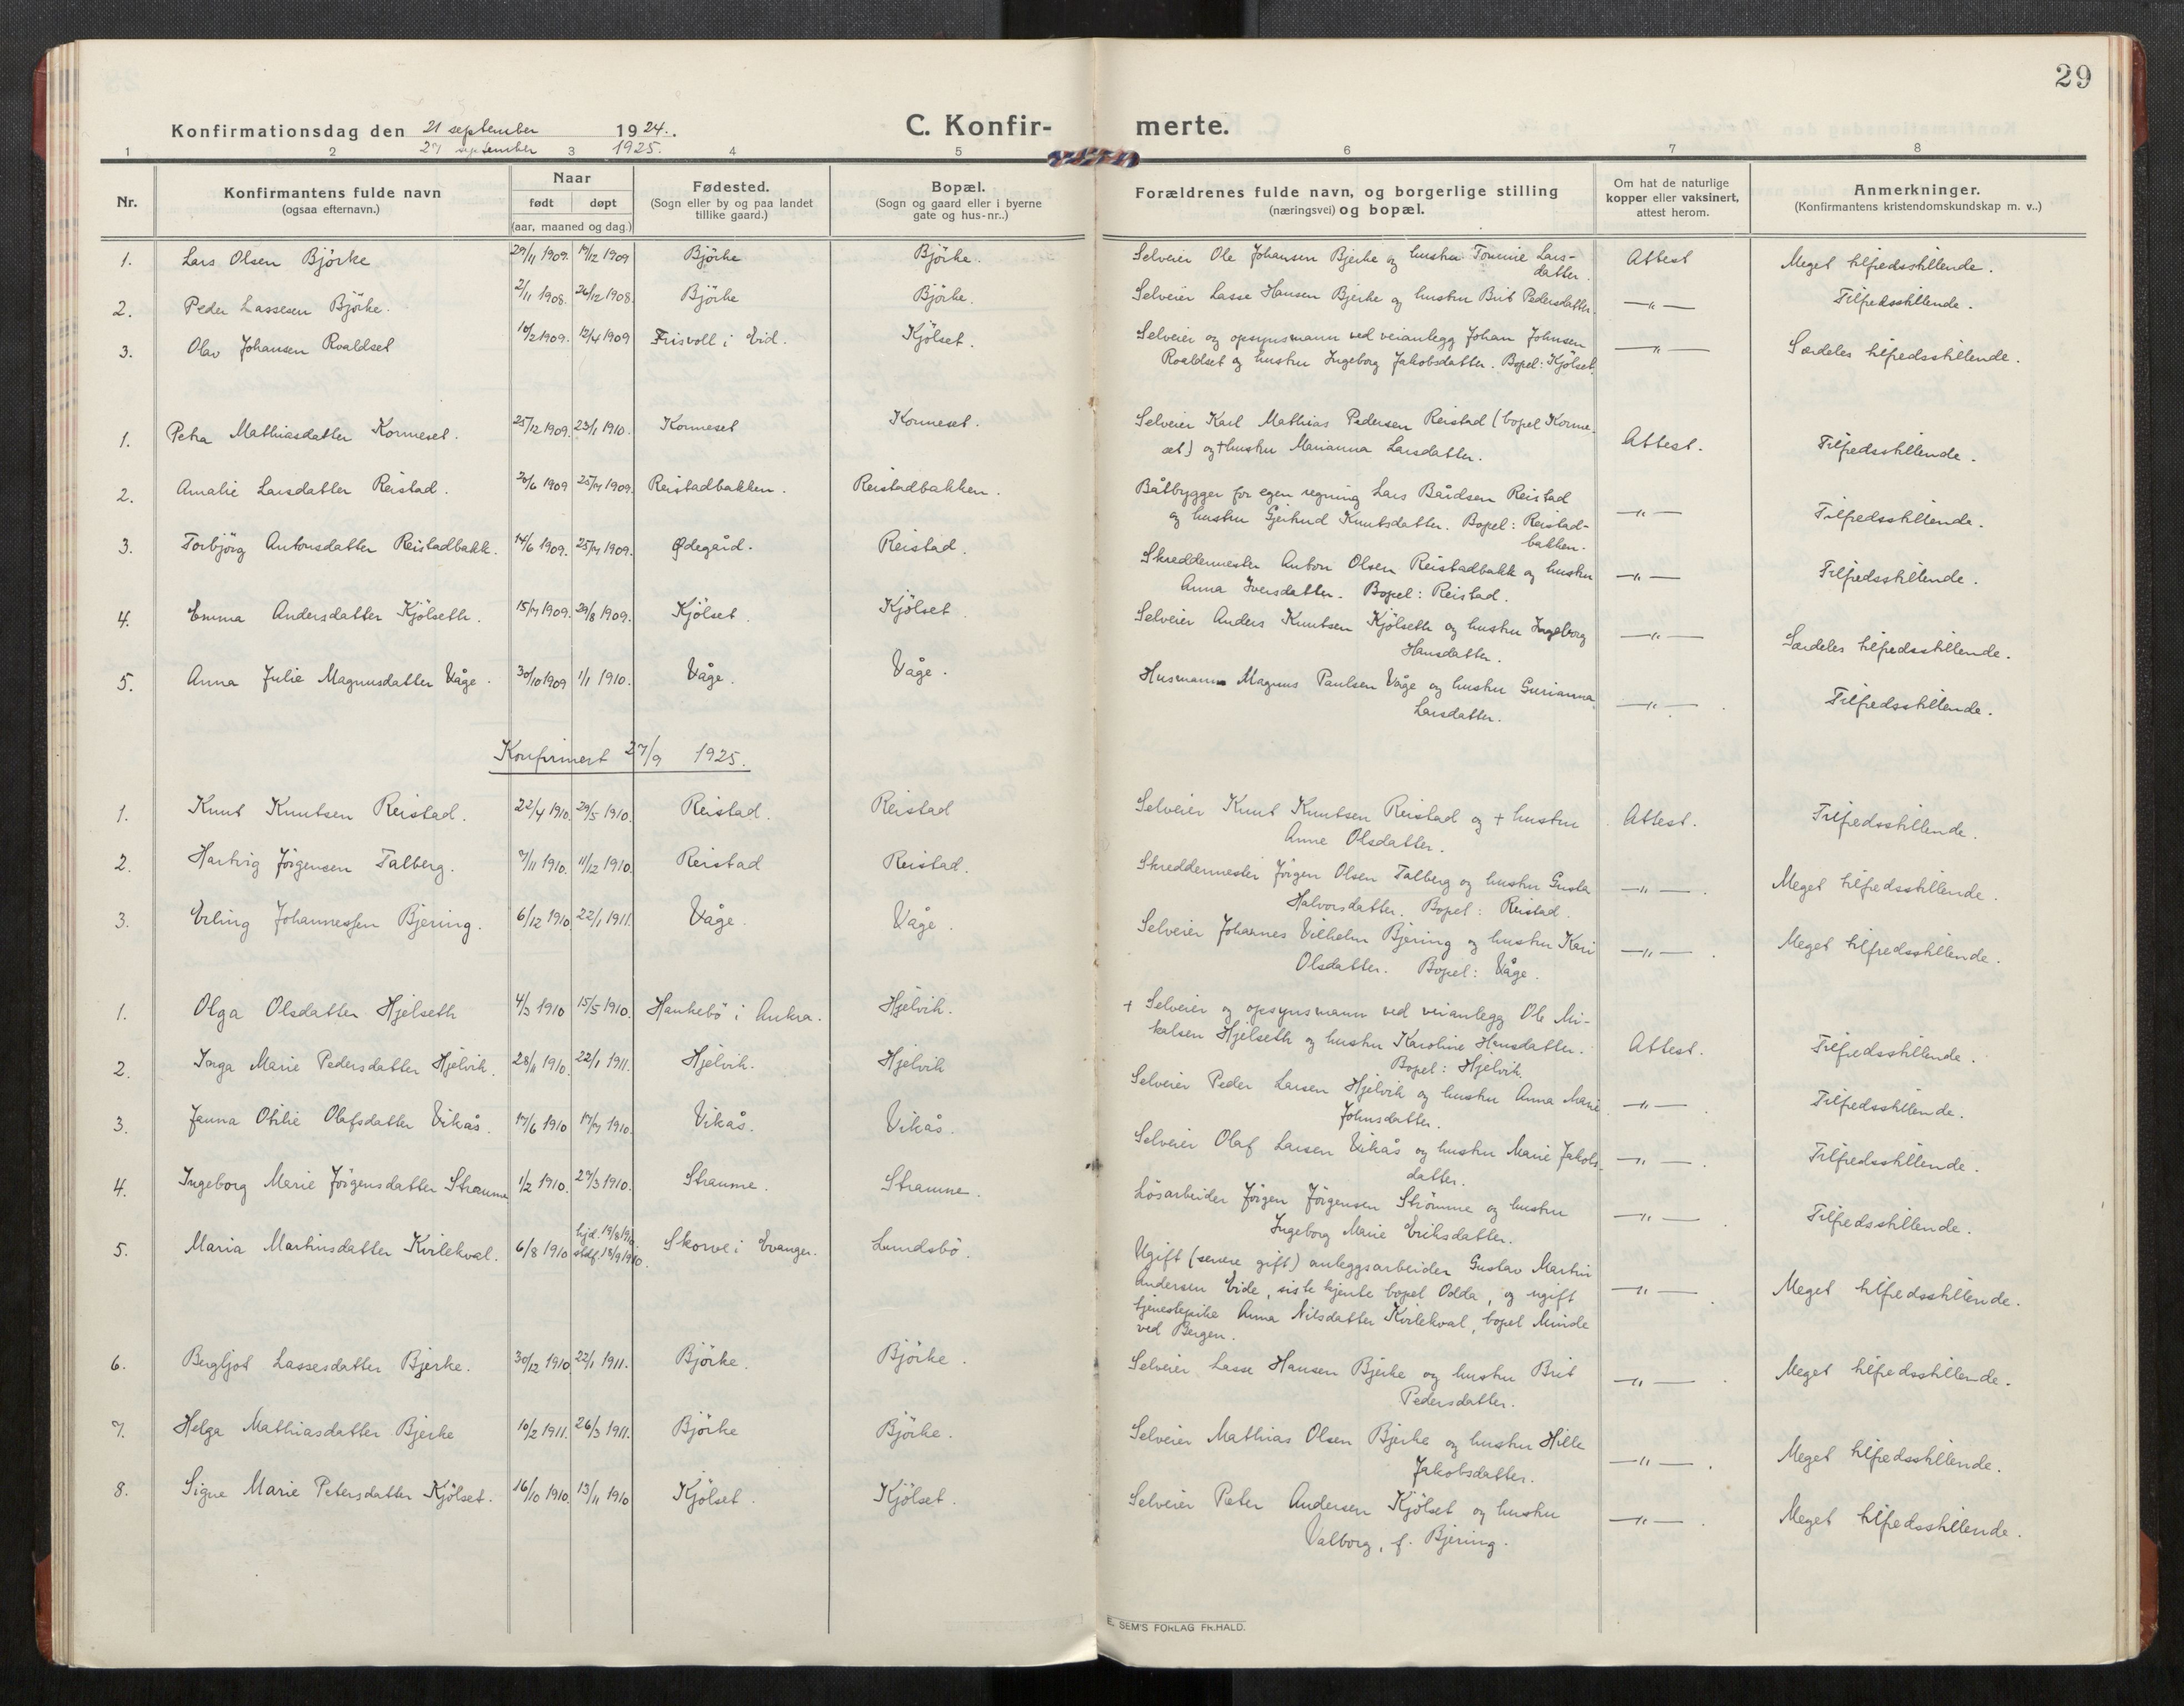 29
Konfirmationsdag den 21 september 1924.
27 september 1925.
C. Konfir- merte.
1 2 3 4 5 6 7 8
Nr.
Konfirmantens fulde navn
(ogsaa efternavn.)
Naar
født døpt
(aar, maaned og dag.)
Fødested.
(Sogn eller by og paa landet
tillike gaard.)
Bopæl.
(Sogn og gaard eller i byerne
gate og hus-nr..)
Forældrenes fulde navn, og borgerlige stilling
(næringsvei) og bopæl.
Om hat de naturlige
kopper eller vaksinert,
attest herom.
Anmerkninger.
(Konfirmantens kristendomskundskap m. v..)
1. Lars Olsen Björke 29/11 1909. 19/12 1909 Björke Björke. Selveier Ole Johansen Bjerke og hustru Tomine Lars- Attest Meget tilfredsstillende.
datter.
2. Peder Lassesen Björke. 2/11 1908. 26/12 1908. Björke Björke. Selveier Lasse Hansen Bjerke og hustru Brit Pedersdatter. —"— Tilfredsstillende.
3. Olav Johansen Roaldset 10/2 1909. 12/4 1909 Frisvoll i Eid. Kjölset. Selveier og opsynsmann ved veianlegg Johan Johnsen —"— Særdeles tilfredsstillende.
Roaldset og hustru Ingeborg Jakobsdatter. Bopel: Kjölset.
1. Petra Mathiasdatter Korneset. 25/12 1909. 23/1 1910. Korneset Korneset. Selveier Karl Mathias Pedersen Reistad (bopel Korne- Attest. Tilfredsstillende.
set) og + hustru Marianna Larsdatter.
2. Amalie Larsdatter Reistad. 20/6 1909 25/7 1909. Reistadbakken. Reistadbakken. Båtbygger for egen regning Lars Bårdsen Reistad —"— Tilfredsstillende.
og hustru Gjertrud Knutsdatter. Bopel: Reistad-
bakken.
3. Torbjörg Antonsdatter Reistadbakk. 14/6 1909. 25/7 1909. Ødegård. Reistad. Skreddermester Anton Olsen Reistadbakk og hustru —"— Tilfredsstillende.
Anna Iversdatter. Bopel: Reistad.
4. Emma Andersdatter Kjölseth. 15/7 1909. 29/8 1909. Kjölset. Kjölset. Selveier Anders Knutsen Kjölseth og hustru Ingeborg —"— Særdeles tilfredsstillende.
Hansdatter.
5. Anna Julie Magnusdatter Våge. 30/10 1909 1/1 1910. Våge. Våge. Husmann Magnus Paulsen Våge og hustru Gurianna —"— Tilfredsstillende.
Larsdatter.
Konfirmert 27/9 1925.
1. Knut Knutsen Reistad. 22/4 1910. 29/5 1910. Reistad. Reistad Selveier Knut Knutsen Reistad og + hustru Attest. Tilfredsstillende.
Anne Olsdatter.
2. Hartvig Jörgensen Talberg. 7/11 1910. 11/12 1910. Reistad Reistad. Skreddermester Jörgen Olsen Talberg og hustru Gusta —"— Meget tilfredsstillende.
Halvorsdatter. Bopel: Reistad.
3. Erling Johannessen Bjering. 6/12 1910 22/1 1911. Våge Våge. Selveier Johannes Vilhelm Bjering og hustru Kari —"— Meget tilfredsstillende.
Olsdatter. Bopel: Våge.
1. Olga Olsdatter Hjelseth 4/3 1910 15/5 1910. Haukebö i Aukra. Hjelvik. + Selveier og opsynsmann ved veianlegg Ole Mi-
kalsen Hjelseth og hustru Karoline Hansdatter. Attest. Tilfredsstillende.
Bopel: Hjelvik.
2. Inga Marie Pedersdatter Hjelvik. 28/11 1910. 22/1 1911. Hjelvik. Hjelvik Selveier Peder Larsen Hjelvik og hustru Anna Marie —"— Tilfredsstillende.
Johnsdatter.
3. Janna Otilie Olafsdatter Vikås. 17/6 1910 17/7 1910. Vikås. Vikås. Selveier Olaf Larsen Vikås og hustru Marie Jakobs- —"— Tilfredsstillende.
datter.
4. Ingeborg Marie Jörgensdatter Straume 1/2 1910. 27/3 1910. Straume. Straume. Lösarbeider Jörgen Jörgensen Strömme og hustru —"— Tilfredsstillende.
Ingeborg Marie Eriksdatter.
5. Maria Martinsdatter Kvilekval. 6/8 1910 hjd. 19/8 1910. stdf. 18/9 1910. Skorve i Evanger. Lundsbö. Ugift (senere gift) anleggsarbeider Gustav Martin
Andersen Eide, siste kjente bopel Odda, og ugift —"— Meget tilfredsstillende.
tjenestepike Anna Nilsdatter Kvilekval, bopel Minde
ved Bergen.
6. Bergljot Lassesdatter Bjerke. 30/12 1910 22/1 1911. Björke. Björke. Selveier Lasse Hansen Bjerke og hustru Brit —"— Meget tilfredsstillende.
Pedersdatter.
7. Helga Mathiasdatter Bjerke 10/2 1911. 26/3 1911. Björke Björke. Selveier Mathias Olsen Bjerke og hustru Hille —"— Meget tilfredsstillende.
Jakobsdatter.
8. Signe Marie Petersdatter Kjölset. 16/10 1910. 13/11 1910 Kjölset. Kjölset. Selveier Peter Andersen Kjölset og hustru —"— Meget tilfredsstillende.
Valborg, f. Bjering.
E. SEM'S FORLAG FR.HALD.